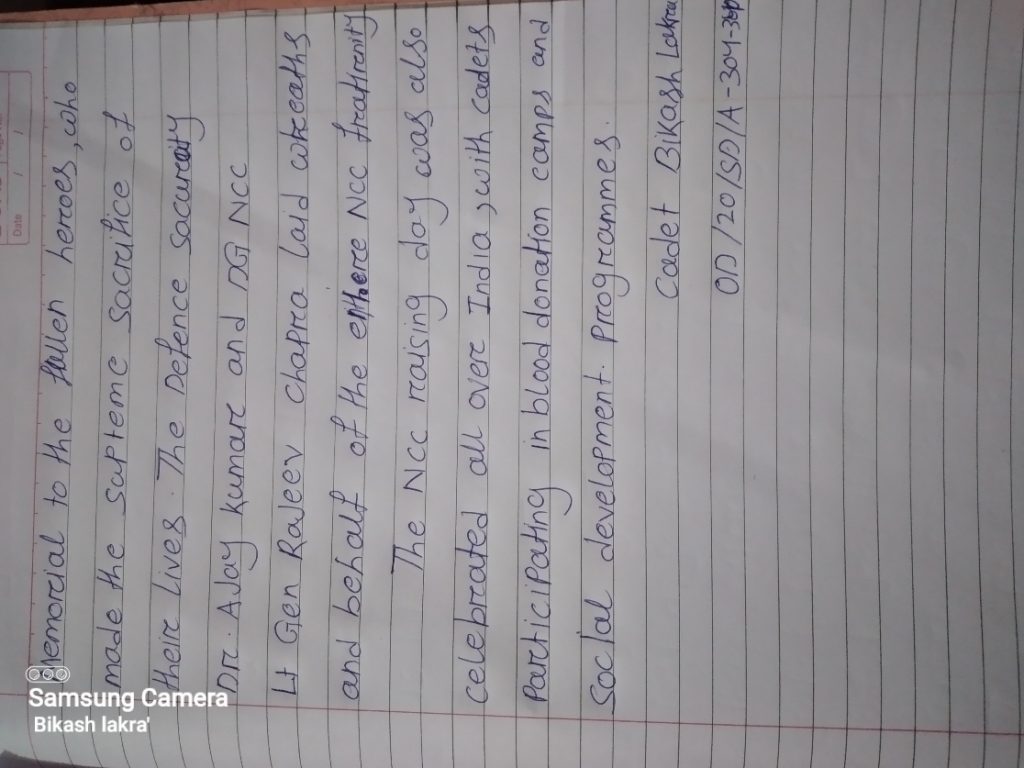 Date / /
Memorial to the fallen heroes, who
made the supteme sacrifice of
theire Lives. The Defence Sacuraty
Dr. AJay Kumare and DG NCC
Lt Gen RaJeev chapra laid wreaths
and behalf of the enhere NCC fratrenity
The NCC raising day was also
celebreated all over India, with cadets
Participating in blood donation camps and
Social development. Programmes.
Cadet Bikash Lakra
OD/20/SD/A-304
Samsung Camera
Bikash lakra'